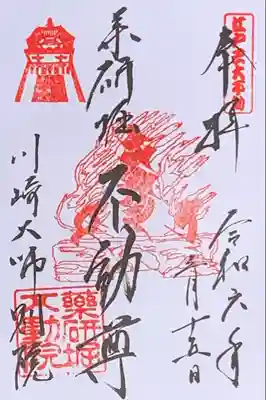 奉拝
令和六年
月十五日
薬研堀
不動尊
川崎大師別院
薬研堀
不動院